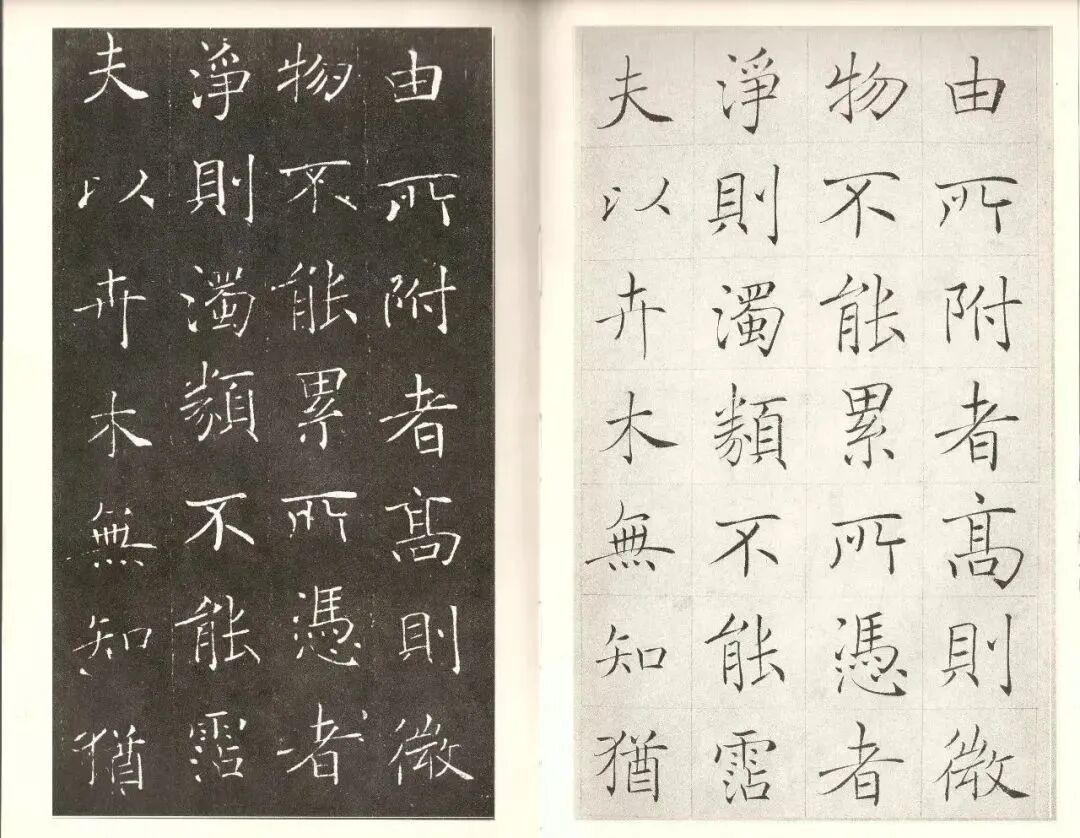 由所附者髙則微
物不能累所憑者
淨則濁類不能霑
夫以卉木無知猶
由所附者髙則微
物不能累所憑者
淨則濁類不能霑
夫以卉木無知猶